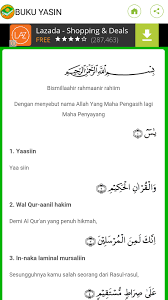 BUKU YASIN
Lazada - Shopping & Deals
FREE ★★★★☆ (287,463)
بِسْمِ اللَّهِ الرَّحْمَٰنِ الرَّحِيمِ
Bismillaahir rahmaanir rahiim
Dengan menyebut nama Allah Yang Maha Pengasih lagi
Maha Penyayang
يسٓ
1. Yaasiin
Yaa siin
وَالْقُرْآنِ الْحَكِيمِ
2. Wal Qur-aanil hakim
Demi Al Qur'an yang penuh hikmah,
إِنَّكَ لَمِنَ الْمُرْسَلِينَ
3. In-naka laminal mursaliin
Sesungguhnya kamu salah seorang dari Rasul-rasul,
عَلَىٰ صِرَاطٍ مُسْتَقِيمٍ